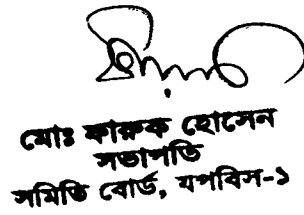 মোঃ ফারুক হোসেন
সভাপতি
সমিতি বোর্ড, যপবিস-১